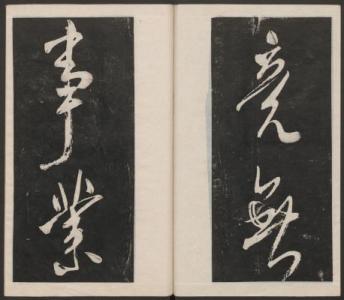 竟無
事業